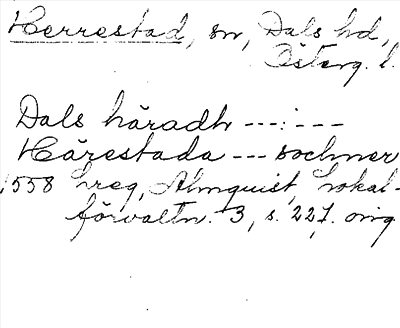 Herrestad, sn, Dals hd,
Österg. l.
Dals häradh ---:---
Härestada --- sochner
1558 hreg, Almquist, Lokal-
förvaltn. 3, s. 227. orig